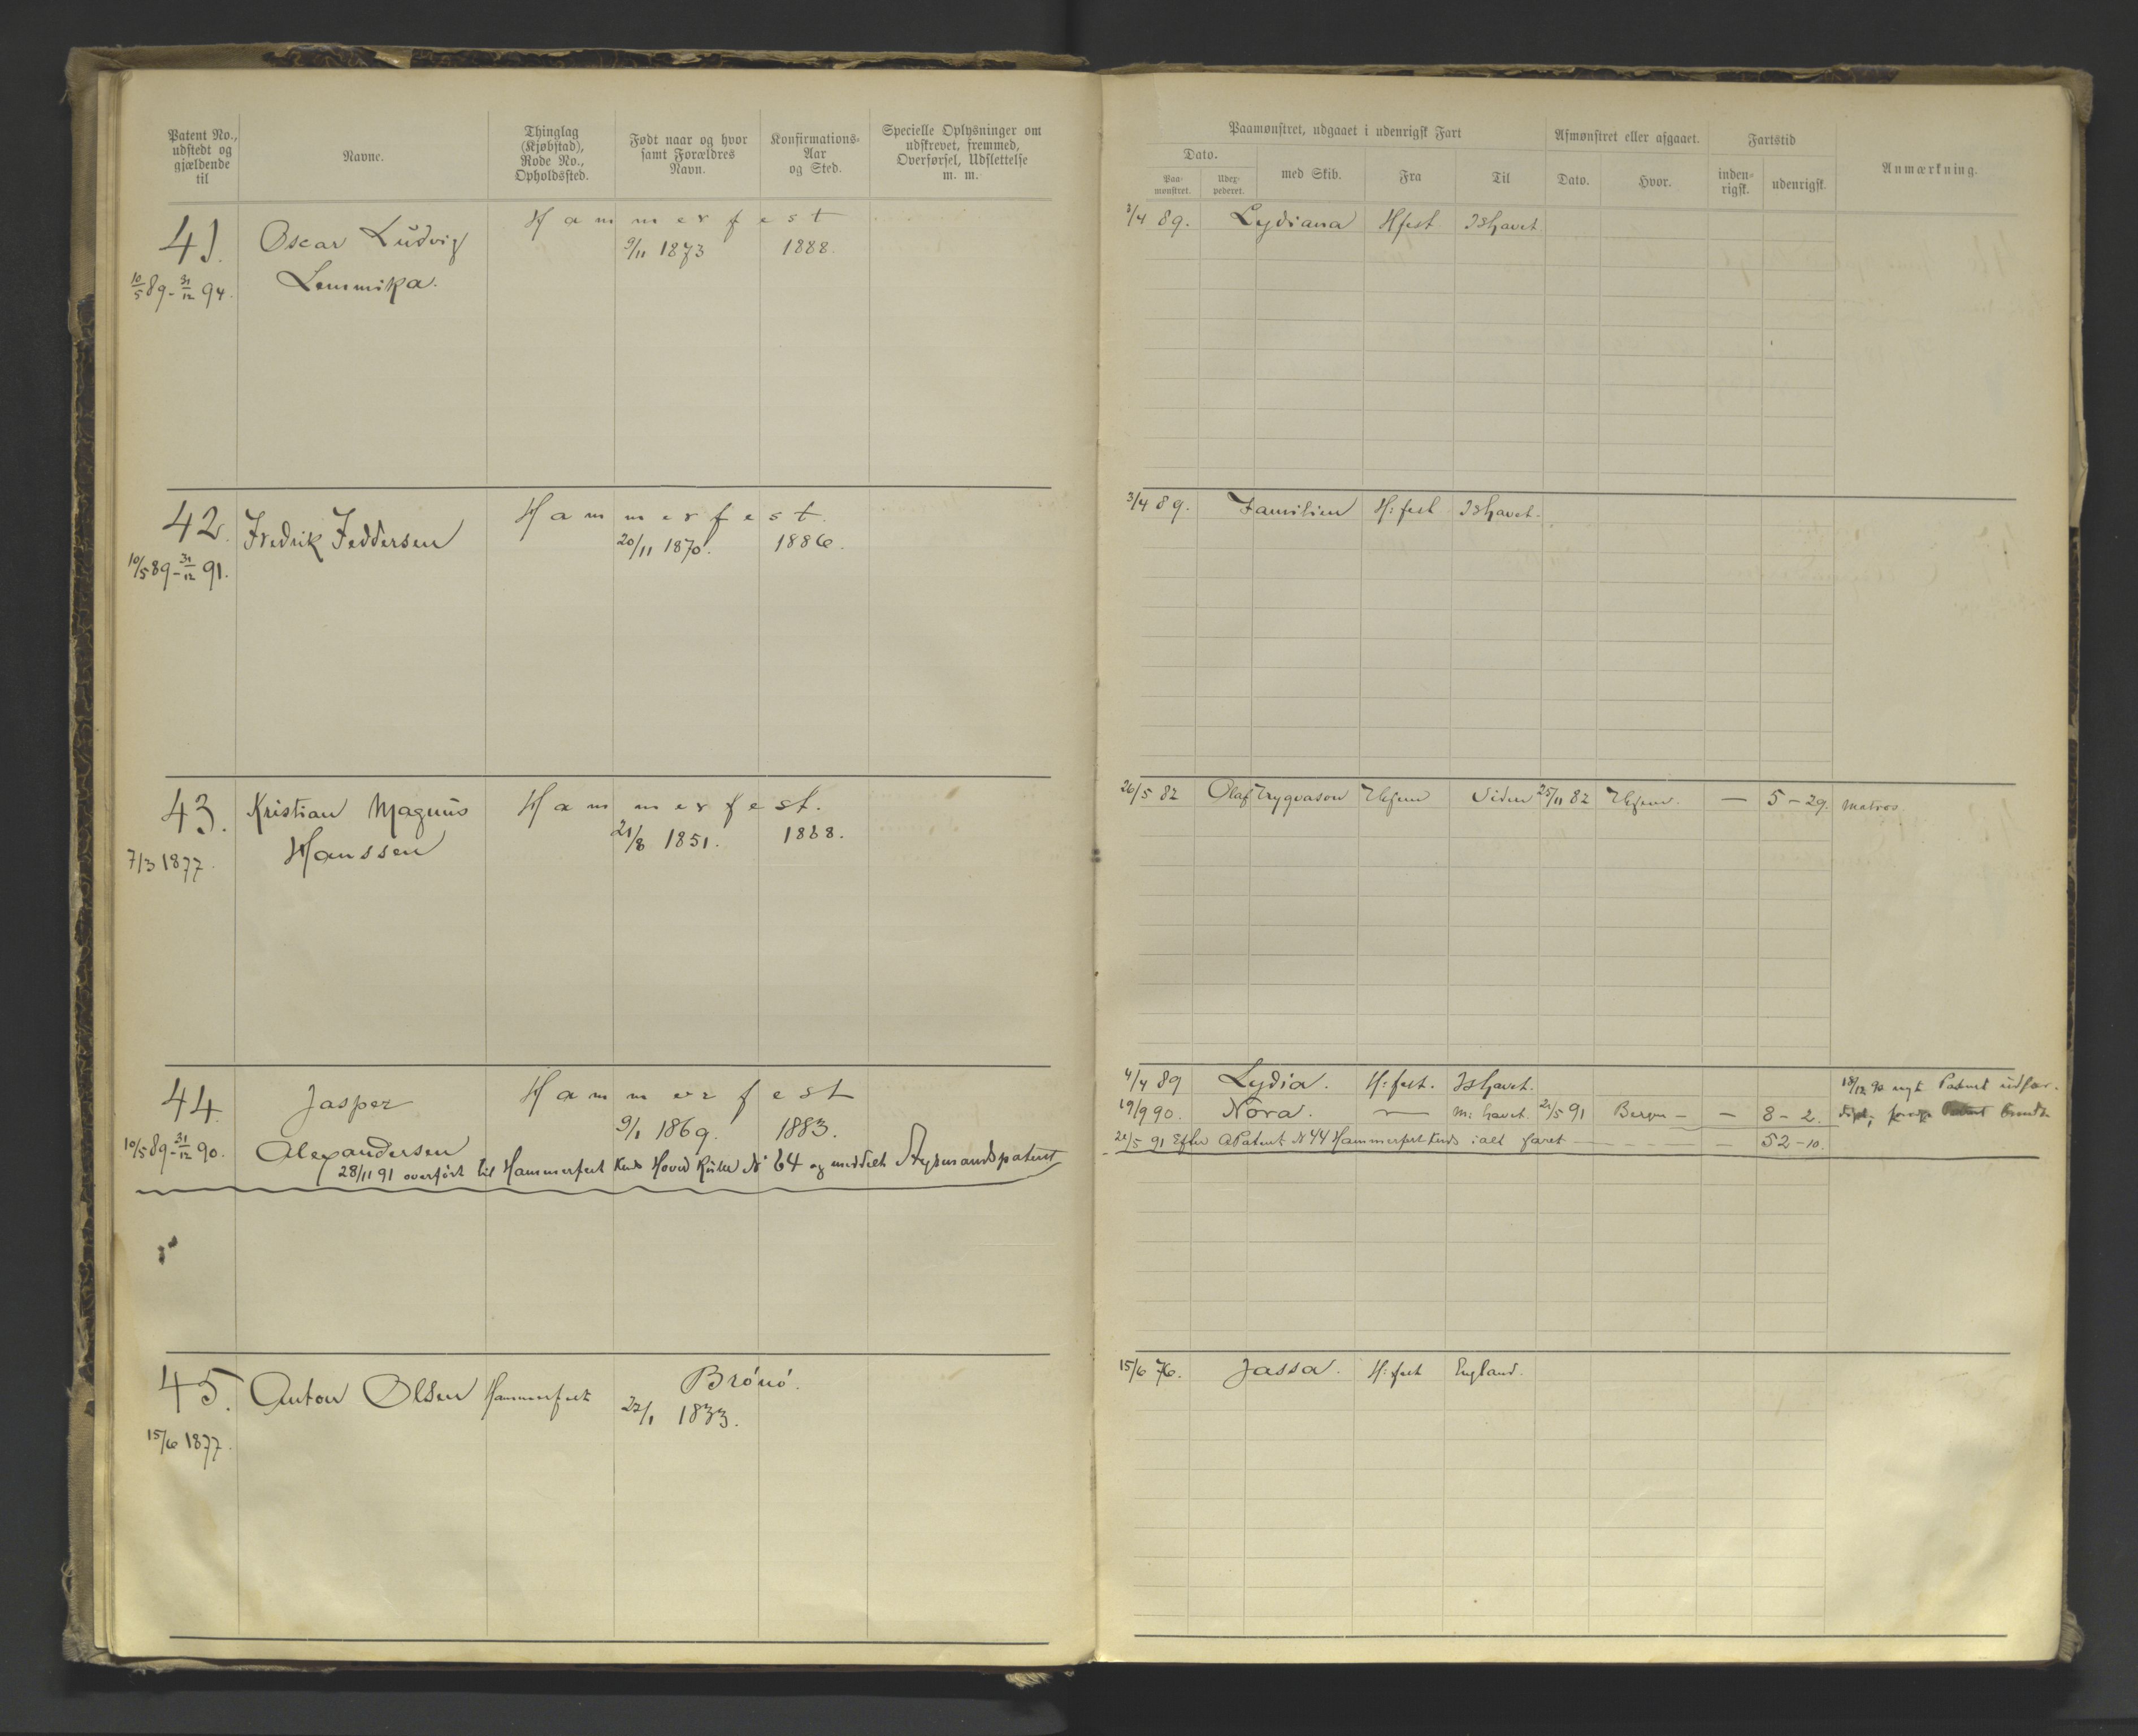 Patent No., udstedt og gjældende til
Navne.
Thinglag (Kjøbstad), Rode No., Opholdssted.
Født naar og hvor samt Forældres Navn.
Konfirmations-Aar og Sted.
Specielle Oplysninger om udskrevet, fremmed, Overførsel, Udslettelse m. m.
41. Oscar Ludvig Hammerfest
9/11 1873 1888.
10/5 89 - 31/12 94. Lemmika.
42. Fredrik Feddersen Hammerfest.
20/11 1870. 1886.
10/5 89 - 31/12 91.
43. Kristian Magnus Hammerfest.
Hanssen 21/8 1851. 1868.
7/3 1877.
44. Jasper Hammerfest
9/1 1869. 1883.
10/5 89 - 31/12 90. Alexandersen
28/11 91 overført til Hammerfest Kreds Hoved Rulle No 64 og meddelt Styrmandspatent
45. Anton Olsen Hammerfest Brönö.
22/1 1833.
15/6 1877.
Paamønstret, udgaaet i udenrigsk Fart
Afmønstret eller afgaaet.
Fartstid
Anmærkning.
Dato.
med Skib.
Fra
Til
Dato.
Hvor.
inden-rigsk.
udenrigsk.
Paa-mønstret.
Udex-pederet.
3/4 89. Lydiana Hfest Ishavet
3/4 89. Familien H:fest Ishavet.
26/5 82 Olaf Trygvason 25/11 82 — 5 - 29. Matros.
4/4 89 Lydia. H:fest. Ishavet. 18/12 90 nyt Patent udfær.
19/9 90. Nora. — M: havet. 21/5 91 Bergen — — 8 - 2.
21/5 91 Efter APatent N 44 Hammerfest Kreds ialt faret — 52 - 10.
15/6 76. Jassa. H:fest England.